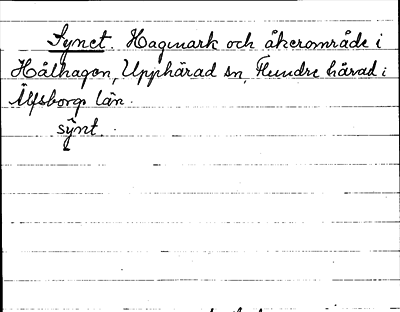 Synet. Hagmark och åkerområde i
Hålhagen, Upphärad sn, Flundre härad i
Älfsborgs län.
sȳnt.